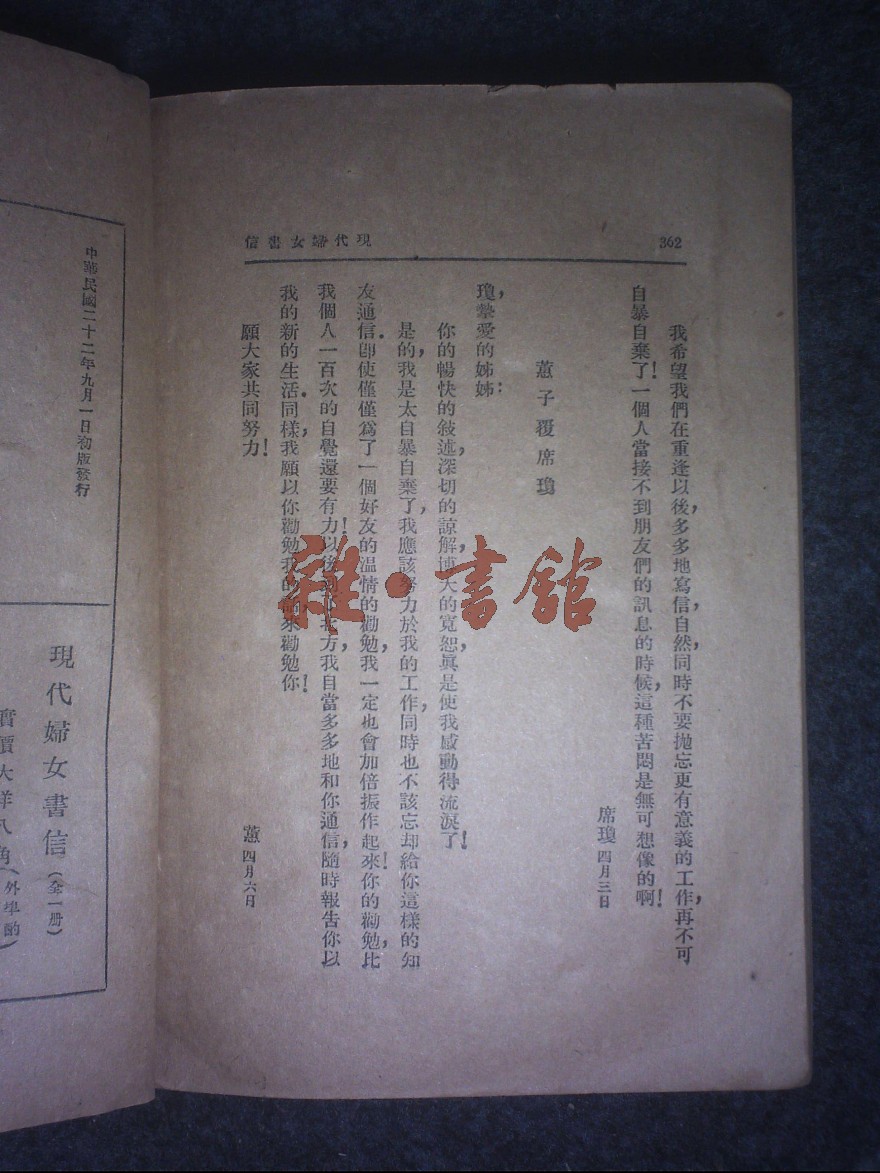 362
現代婦女書信
我希望我們在重逢以後，多多地寫信，自然同時不要拋忘更有意義的工作，再不可
自暴自棄了！一個人當接不到朋友們的訊息的時候，這種苦悶是無可想像的啊！
席瓊 四月三日
蕙子覆席瓊
瓊，摯愛的姊姊：
你的暢快的敍述，深切的諒解，博大的寬恕，眞是使我感動得流淚了！
是的，我是太自暴自棄了，我應該努力於我的工作，同時也不該忘却給你這樣的知
友通信．卽使僅僅爲了一個好友的溫情的勸勉，我一定也會加倍振作起來！你的勸勉，比
我個人一百次的自覺還要有力！以後方，我自當多多地和你通信，隨時報告你以
我的新的生活．同樣，我願以你勸勉我的來勸勉你！
願大家共同努力！
蕙 四月六日
中華民國二十二年九月一日初版發行
現代婦女書信（全一册）
實價大洋八角（外埠酌
雜·書館